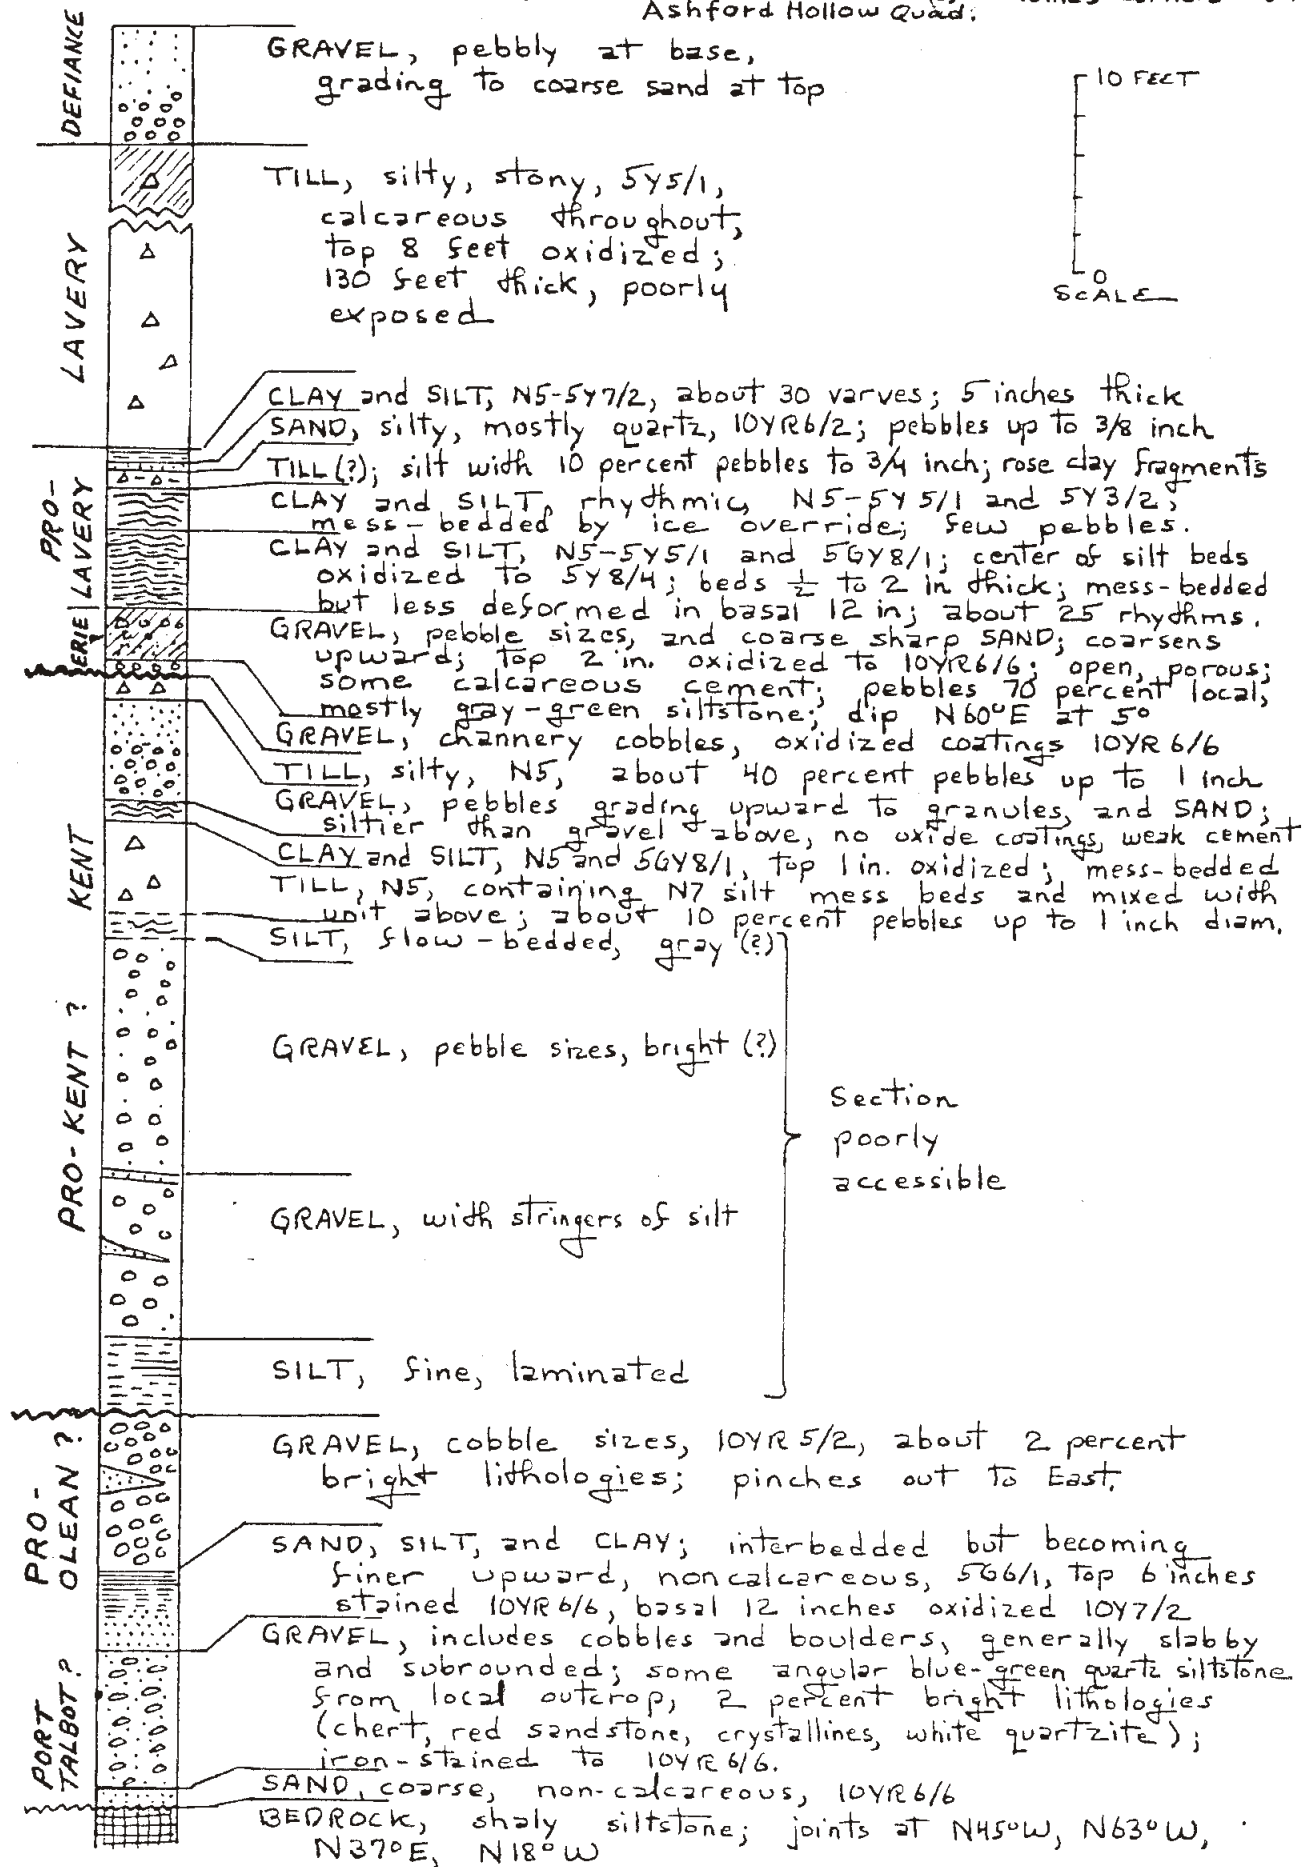 Ashford Hollow Quad.
DEFIANCE
GRAVEL, pebbly at base,
grading to coarse sand at top
10 FEET
0
SCALE
LAVERY
TILL, silty, stony, 5Y5/1,
calcareous throughout,
top 8 feet oxidized;
130 feet thick, poorly
exposed
PRO-
LAVERY
CLAY and SILT, N5-5Y7/2, about 30 varves; 5 inches thick
SAND, silty, mostly quartz, 10YR6/2; pebbles up to 3/8 inch
TILL(?); silt with 10 percent pebbles to 3/4 inch; rose clay fragments
CLAY and SILT, rhythmic, N5-5Y 5/1 and 5Y3/2;
mess-bedded by ice override; few pebbles.
CLAY and SILT, N5-5Y5/1 and 5GY8/1; center of silt beds
oxidized to 5Y8/4; beds ½ to 2 in thick; mess-bedded
but less deformed in basal 12 in; about 25 rhythms.
ERIE
GRAVEL, pebble sizes, and coarse sharp SAND; coarsens
upward; top 2 in. oxidized to 10YR6/6; open, porous;
some calcareous cement; pebbles 70 percent local,
mostly gray-green siltstone; dip N60°E at 5°
GRAVEL, channery cobbles, oxidized coatings 10YR 6/6
KENT
TILL, silty, N5, about 40 percent pebbles up to 1 inch
GRAVEL, pebbles grading upward to granules, and SAND;
siltier than gravel above, no oxide coatings, weak cement
CLAY and SILT, N5 and 5GY8/1, top 1 in. oxidized; mess-bedded
TILL, N5, containing N7 silt mess beds and mixed with
unit above; about 10 percent pebbles up to 1 inch diam.
SILT, flow-bedded, gray (?)
PRO-KENT ?
GRAVEL, pebble sizes, bright (?)
Section
poorly
accessible
GRAVEL, with stringers of silt
SILT, fine, laminated
PRO-
OLEAN ?
GRAVEL, cobble sizes, 10YR 5/2, about 2 percent
bright lithologies; pinches out to East.
SAND, SILT, and CLAY; interbedded but becoming
finer upward, noncalcareous, 5G6/1, top 6 inches
stained 10YR 6/6, basal 12 inches oxidized 10Y7/2
PORT
TALBOT ?
GRAVEL, includes cobbles and boulders, generally slabby
and subrounded; some angular blue-green quartz siltstone
from local outcrop, 2 percent bright lithologies
(chert, red sandstone, crystallines, white quartzite);
iron-stained to 10YR 6/6.
SAND, coarse, non-calcareous, 10YR6/6
BEDROCK, shaly siltstone; joints at N45°W, N63°W,
N37°E, N18°W